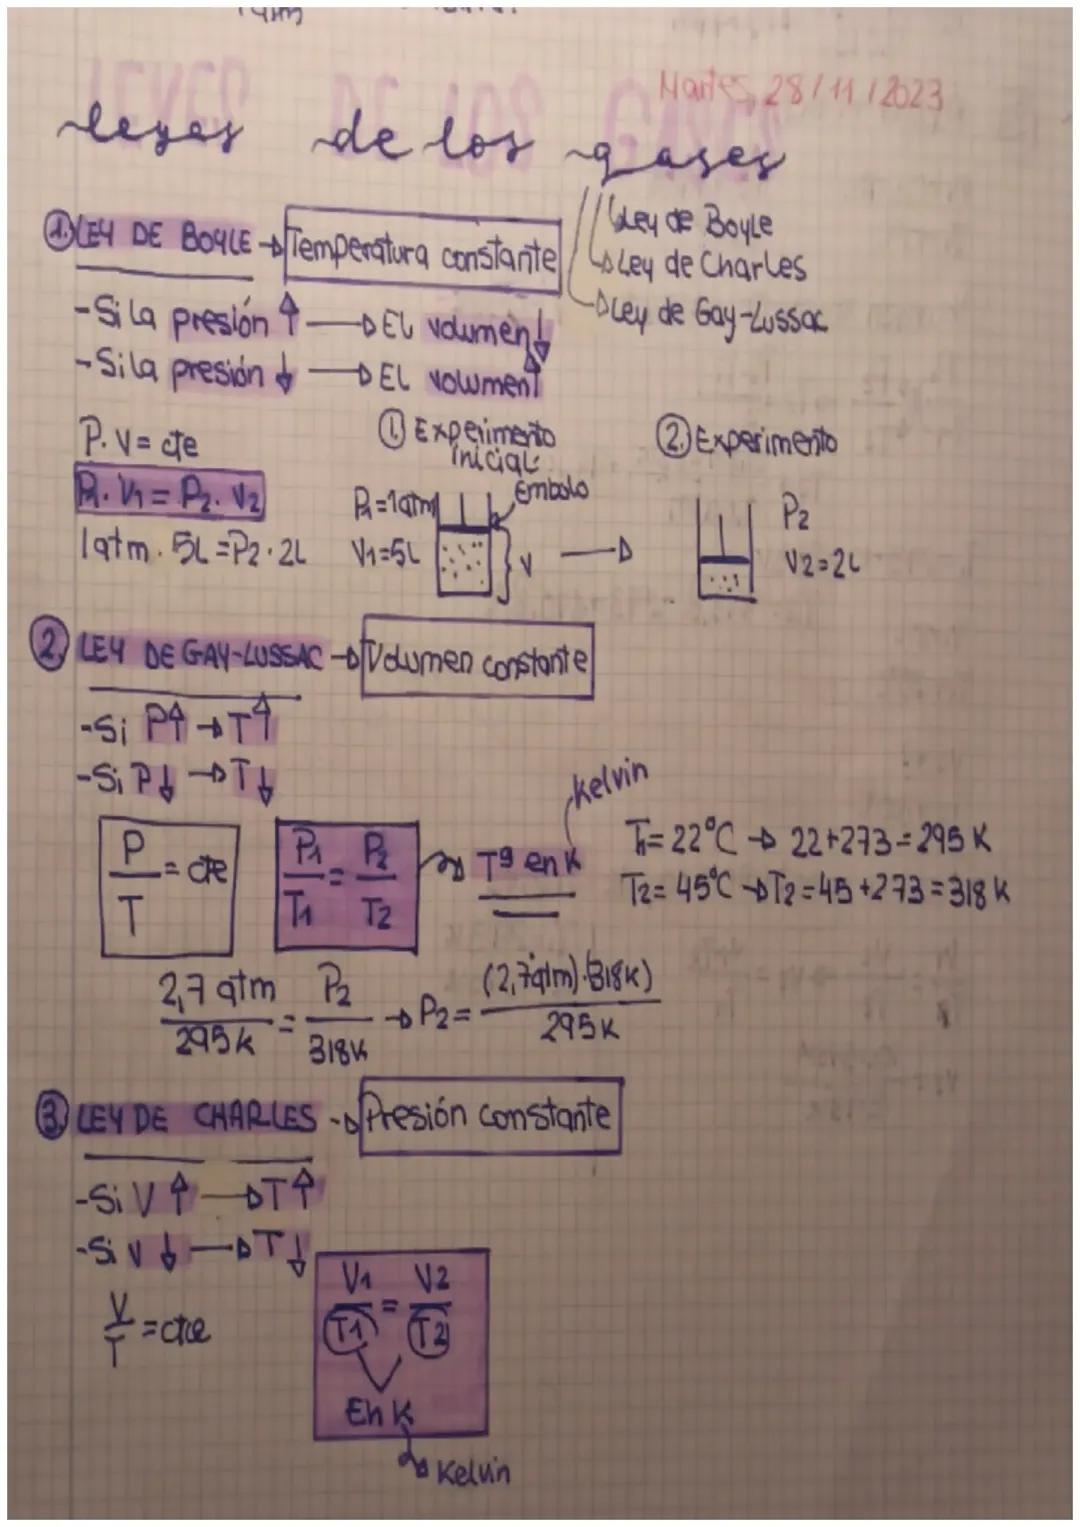 1 atm
Martes, 28/11/2023
leyes de los gases
↳Ley de Boyle
↳Ley de Charles
→Ley de Gay-Lussac
1. LEY DE BOYLE → Temperatura constante
- Si la presión ↑ → El volumen ↓
- Si la presión ↓ → El volumen ↑
P. V = cte
P1. V1 = P2. V2
1atm. 5L = P2. 2L
① Experimento inicial:
Embolo
P1=1atm
V1=5L
V
→
② Experimento
P2
V2=2L
2. LEY DE GAY-LUSSAC → Volumen constante
- Si P↑ → T↑
- Si P↓ → T↓
P/T = cte
P1/T1 = P2/T2 → Tª en K
Kelvin
T1= 22°C → 22+273=295 K
T2= 45°C → T2=45+273=318 K
2,7 atm/295K = P2/318K → P2= (2,7atm).(318K)/295K
3. LEY DE CHARLES → Presión constante
- Si V ↑ → T↑
- Si V ↓ → T↓
V/T = cte
V1/T1 = V2/T2
En K
Kelvin